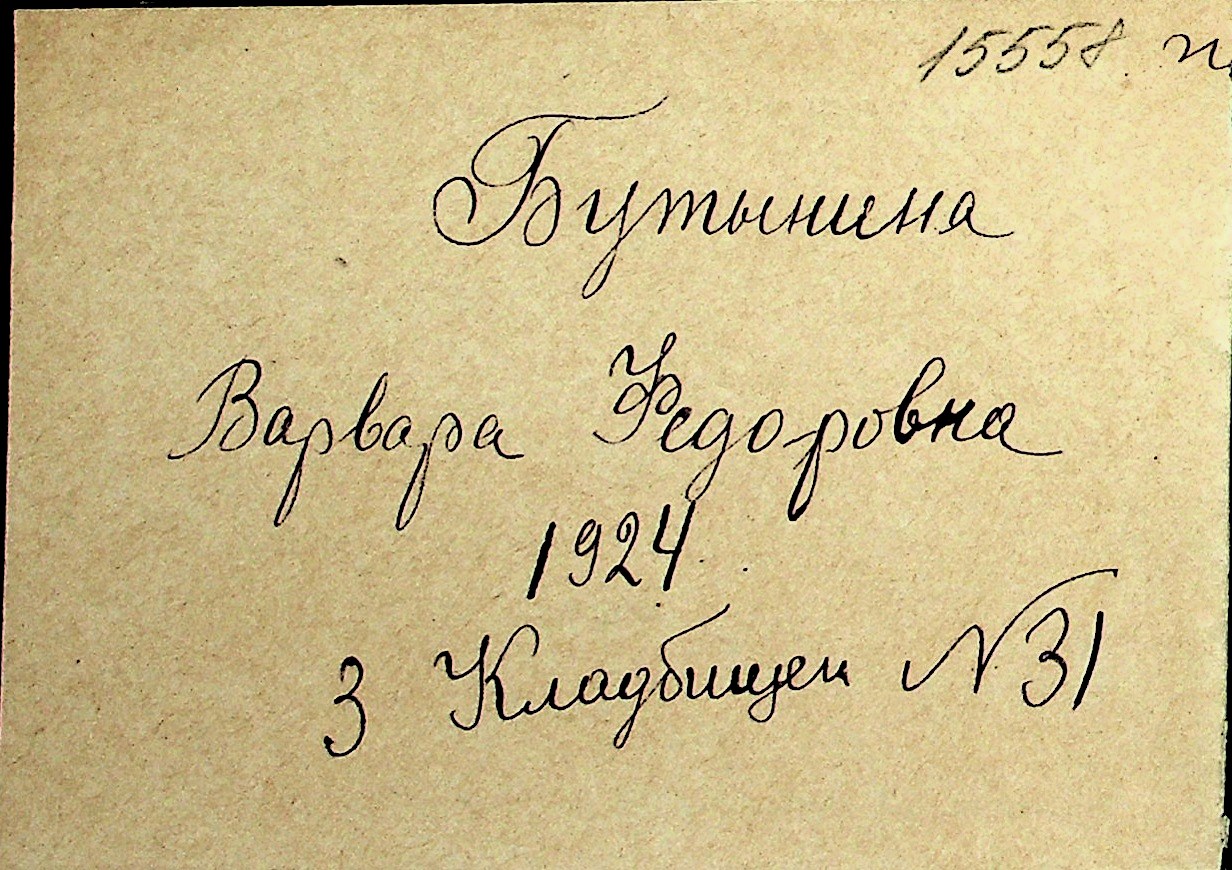 15558
Бутынина
Варвара Федоровна
1924
3 Кладбищен N31